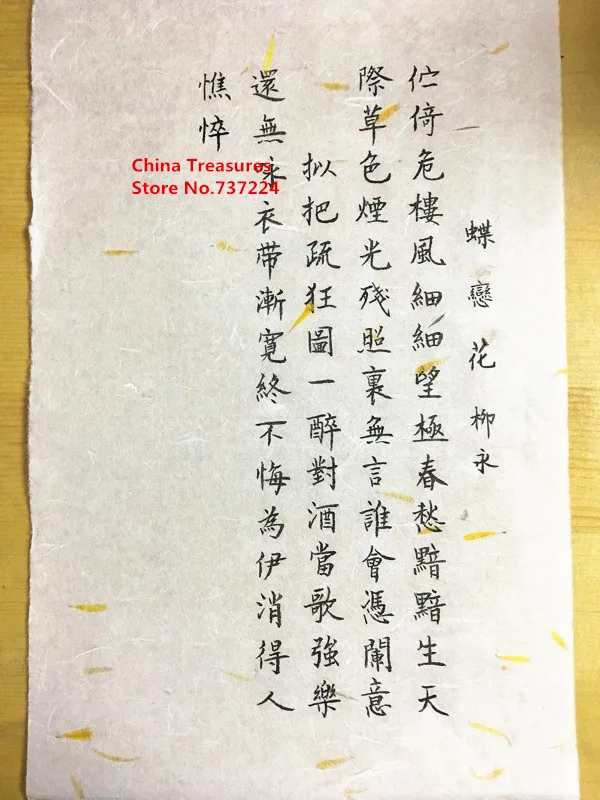 蝶戀花 柳永
伫倚危樓風細細望極春愁黯黯生天
際草色煙光殘照裏無言誰會憑闌意
拟把疏狂圖一醉對酒當歌強樂
還無味衣帶漸寬終不悔為伊消得人
憔悴
China Treasures
Store No.737224